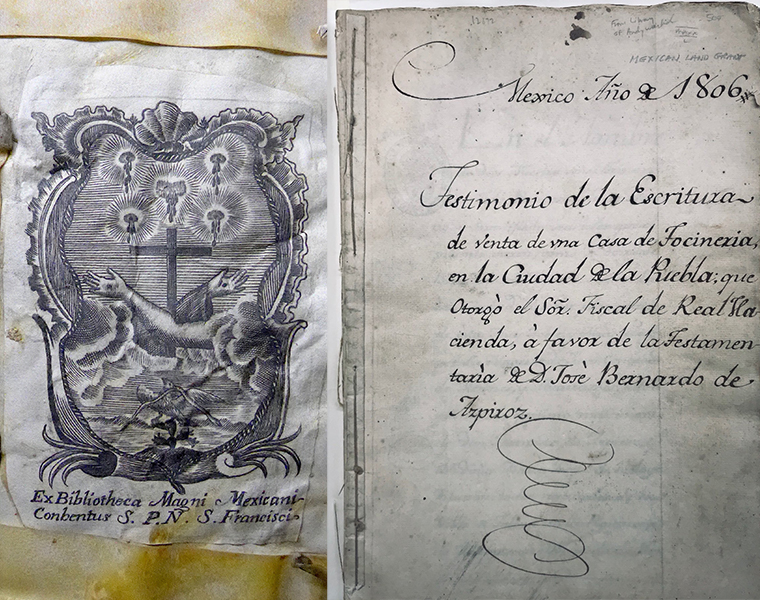 Ex Bibliotheca Magni Mexicani
Conbentus S. P. N. S. Francisci.
12/77
From Library
of
500
MEXICAN LAND GRANT
Mexico Año de 1806,
Testimonio de la Escritura
de venta de vna Casa de Tocineria,
en la Ciudad de la Puebla; que
Otorgò el Sōr. Fiscal de Real Ha-
cienda, à favor de la Testamen-
taria de D. Josè Bernardo de
Azpiroz.